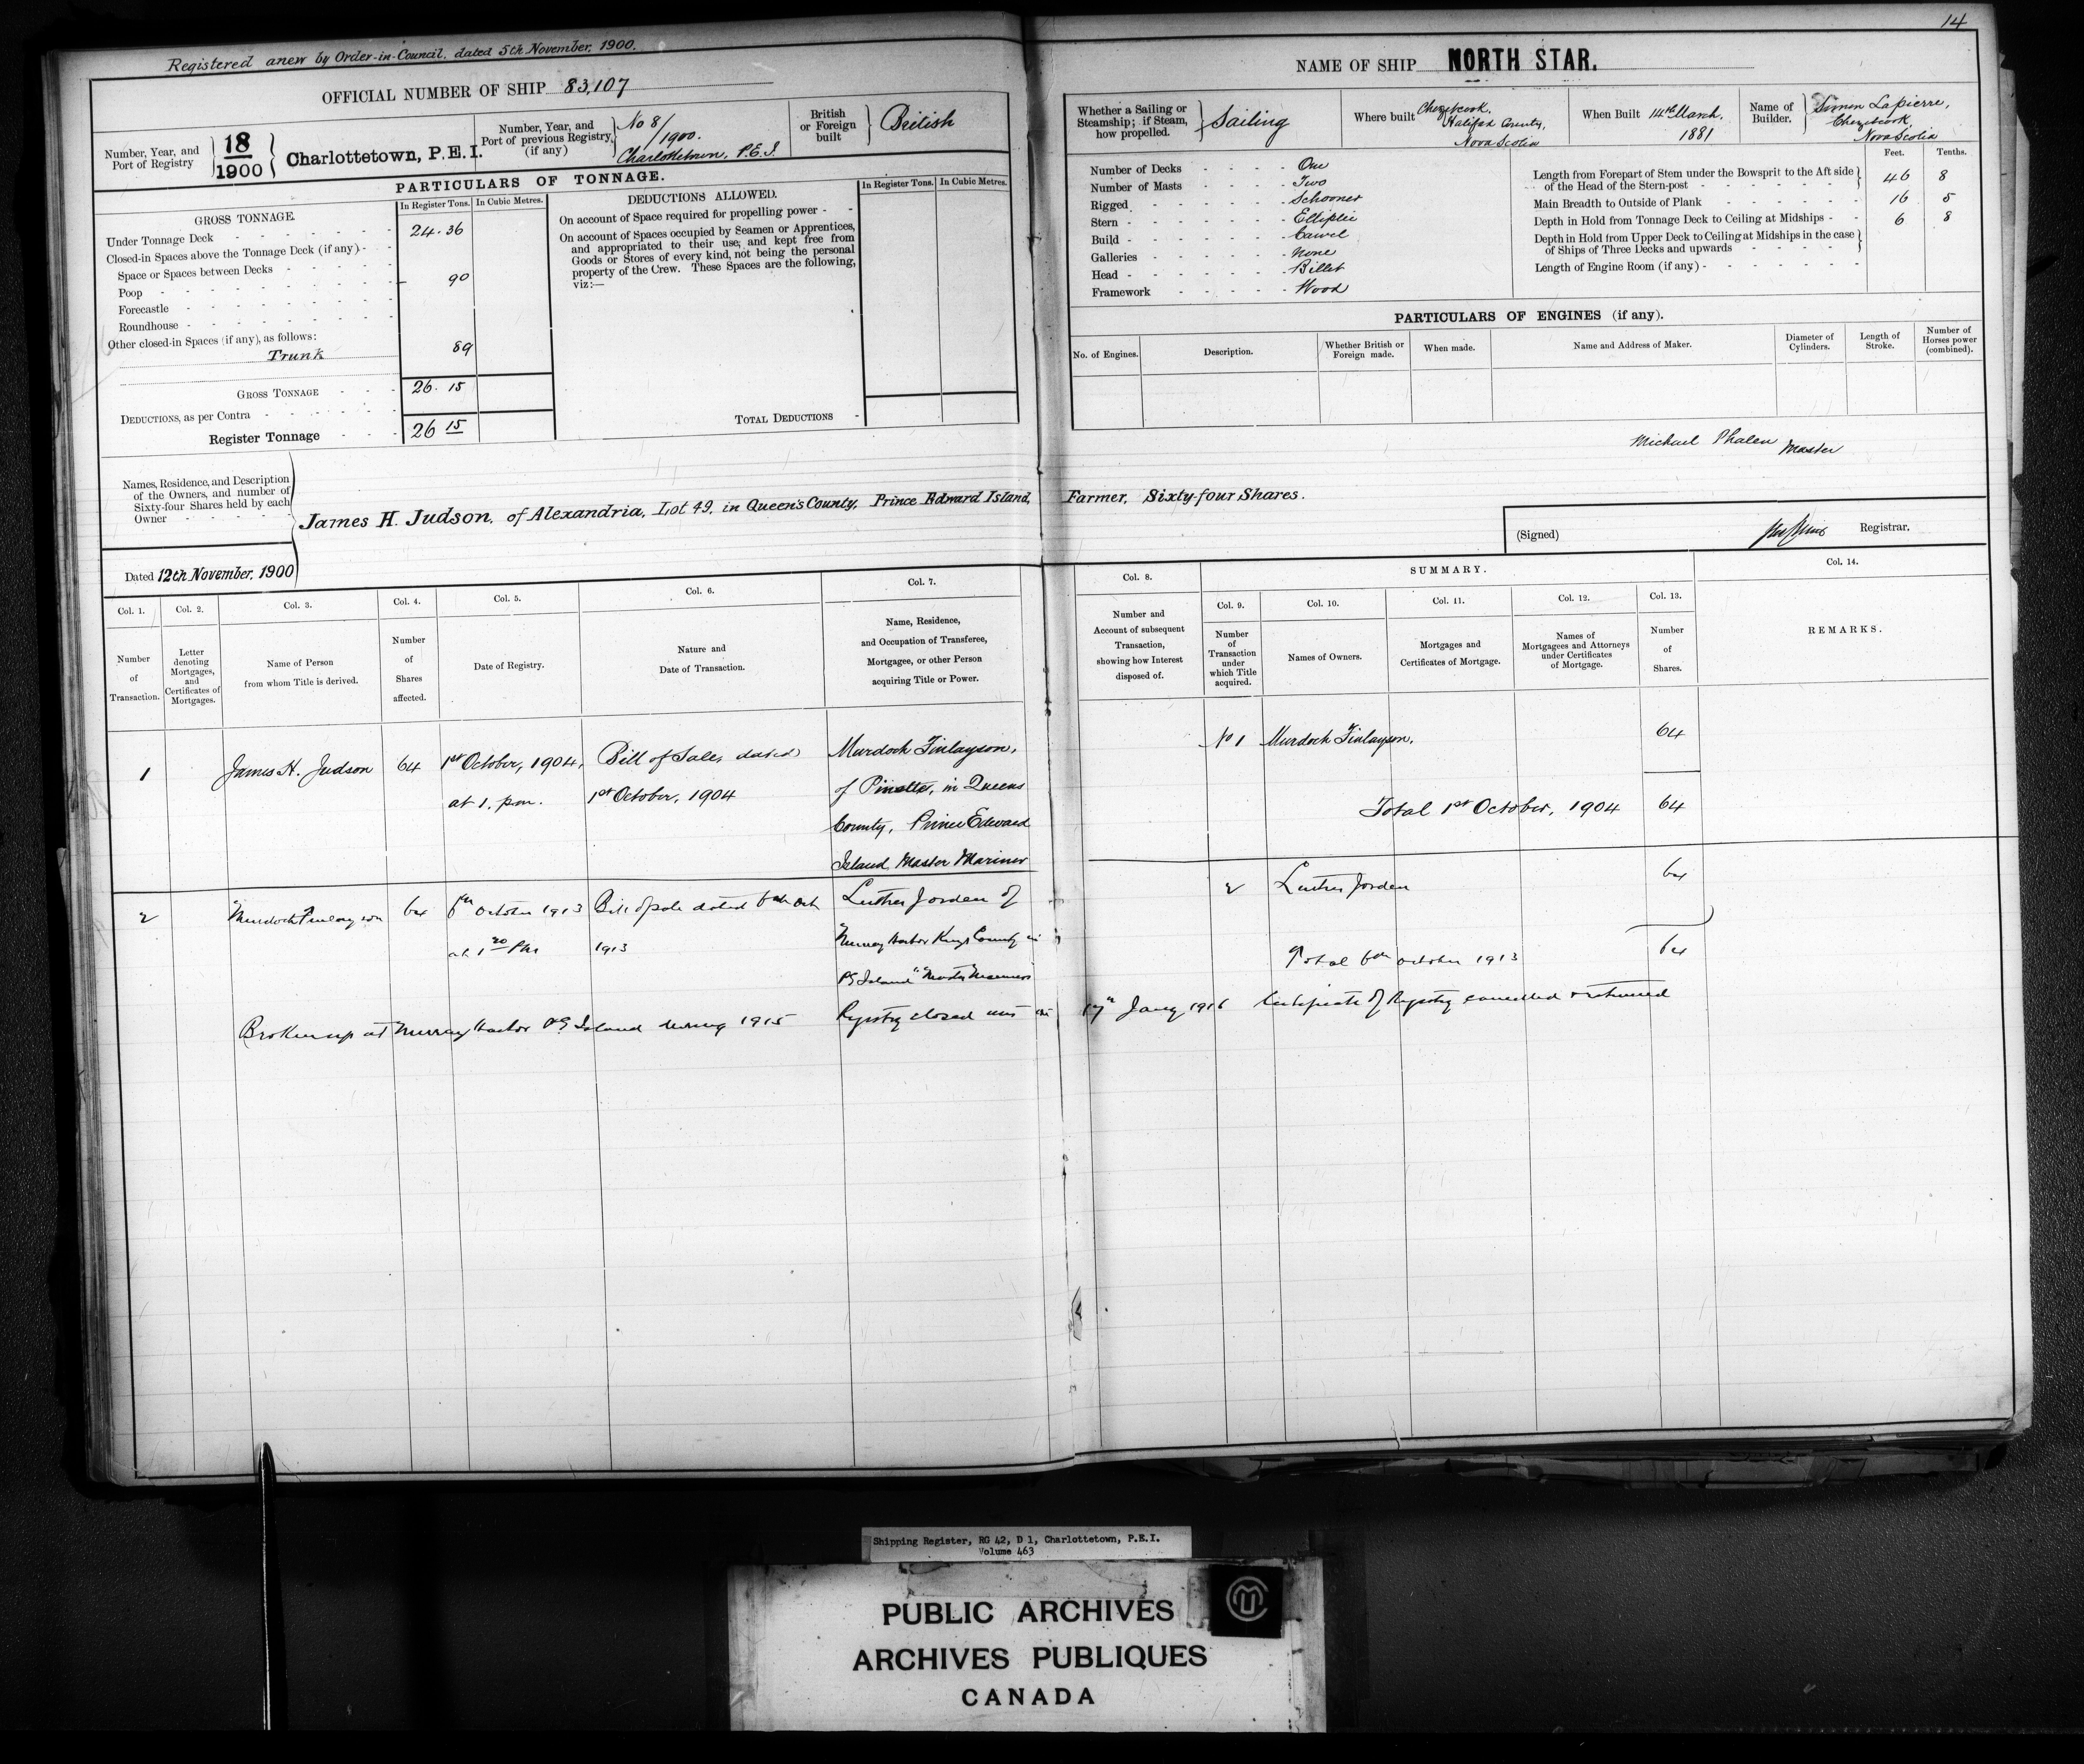 14
Registered anew by Order-in-Council, dated 5th November, 1900.
OFFICIAL NUMBER OF SHIP 83,107
Number, Year, and
Port of Registry
18
1900
Charlottetown, P.E.I.
Number, Year, and
Port of previous Registry
(if any)
No 8/
1900.
Charlottetown, P.E.I.
British
or Foreign
built
British
PARTICULARS OF TONNAGE.
GROSS TONNAGE.
In Register Tons.
In Cubic Metres.
Under Tonnage Deck 24.36
Closed-in Spaces above the Tonnage Deck (if any)
Space or Spaces between Decks
Poop 90
Forecastle
Roundhouse
Other closed-in Spaces (if any), as follows:
Trunk 89
GROSS TONNAGE 26.15
DEDUCTIONS, as per Contra
Register Tonnage 26 15
DEDUCTIONS ALLOWED.
In Register Tons.
In Cubic Metres.
On account of Space required for propelling power
On account of Spaces occupied by Seamen or Apprentices,
and appropriated to their use, and kept free from
Goods or Stores of every kind, not being the personal
property of the Crew. These Spaces are the following,
viz:—
TOTAL DEDUCTIONS
NAME OF SHIP NORTH STAR.
Whether a Sailing or
Steamship; if Steam,
how propelled.
Sailing
Where built
Chezetcook,
Halifax County,
Nova Scotia
When Built 14th March,
1881
Name of
Builder.
Simon Lapierre,
Chezetcook,
Nova Scotia
Number of Decks One
Number of Masts Two
Rigged Schooner
Stern Elliptic
Build Carvel
Galleries None
Head Billet
Framework Wood
Feet. Tenths.
Length from Forepart of Stem under the Bowsprit to the Aft side
of the Head of the Stern-post 46 8
Main Breadth to Outside of Plank 16 5
Depth in Hold from Tonnage Deck to Ceiling at Midships 6 8
Depth in Hold from Upper Deck to Ceiling at Midships in the case
of Ships of Three Decks and upwards
Length of Engine Room (if any)
PARTICULARS OF ENGINES (if any).
No. of Engines.
Description.
Whether British or
Foreign made.
When made.
Name and Address of Maker.
Diameter of
Cylinders.
Length of
Stroke.
Number of
Horses power
(combined).
Michael Phalen Master
Names, Residence, and Description
of the Owners, and number of
Sixty-four Shares held by each
Owner
James H. Judson, of Alexandria, Lot 49, in Queen's County, Prince Edward Island, Farmer, Sixty-four Shares.
Dated 12th November, 1900
(Signed)
Registrar.
Col. 1.
Number
of
Transaction.
Col. 2.
Letter
denoting
Mortgages,
and
Certificates of
Mortgages.
Col. 3.
Name of Person
from whom Title is derived.
Col. 4.
Number
of
Shares
affected.
Col. 5.
Date of Registry.
Col. 6.
Nature and
Date of Transaction.
Col. 7.
Name, Residence,
and Occupation of Transferee,
Mortgagee, or other Person
acquiring Title or Power.
Col. 8.
Number and
Account of subsequent
Transaction,
showing how Interest
disposed of.
SUMMARY.
Col. 9.
Number
of
Transaction
under
which Title
acquired.
Col. 10.
Names of Owners.
Col. 11.
Mortgages and
Certificates of Mortgage.
Col. 12.
Names of
Mortgagees and Attorneys
under Certificates
of Mortgage.
Col. 13.
Number
of
Shares.
Col. 14.
REMARKS.
1
James H. Judson
64
1st October, 1904,
at 1. p.m.
Bill of Sale, dated
1st October, 1904
Murdoch Finlayson,
of Pinette, in Queens
County, Prince Edward
Island, Master Mariner
No 1
Murdoch Finlayson.
64
Total 1st October, 1904 64
2
Murdoch Finlayson
64
6th October 1913
at 1 20 PM
Bill of sale dated 6th Oct
1913
Luther Jorden of
Murray Harbor Kings County in
PE Island Master Mariner
2
Luther Jorden
64
Total 6th October 1913 64
Broken up at Murray Harbor PE Island during 1915 Registry closed this 17th Jany 1916 Certificate of Registry cancelled & returned
Shipping Register, RG 42, D 1, Charlottetown, P.E.I.
Volume 463
PUBLIC ARCHIVES
ARCHIVES PUBLIQUES
CANADA